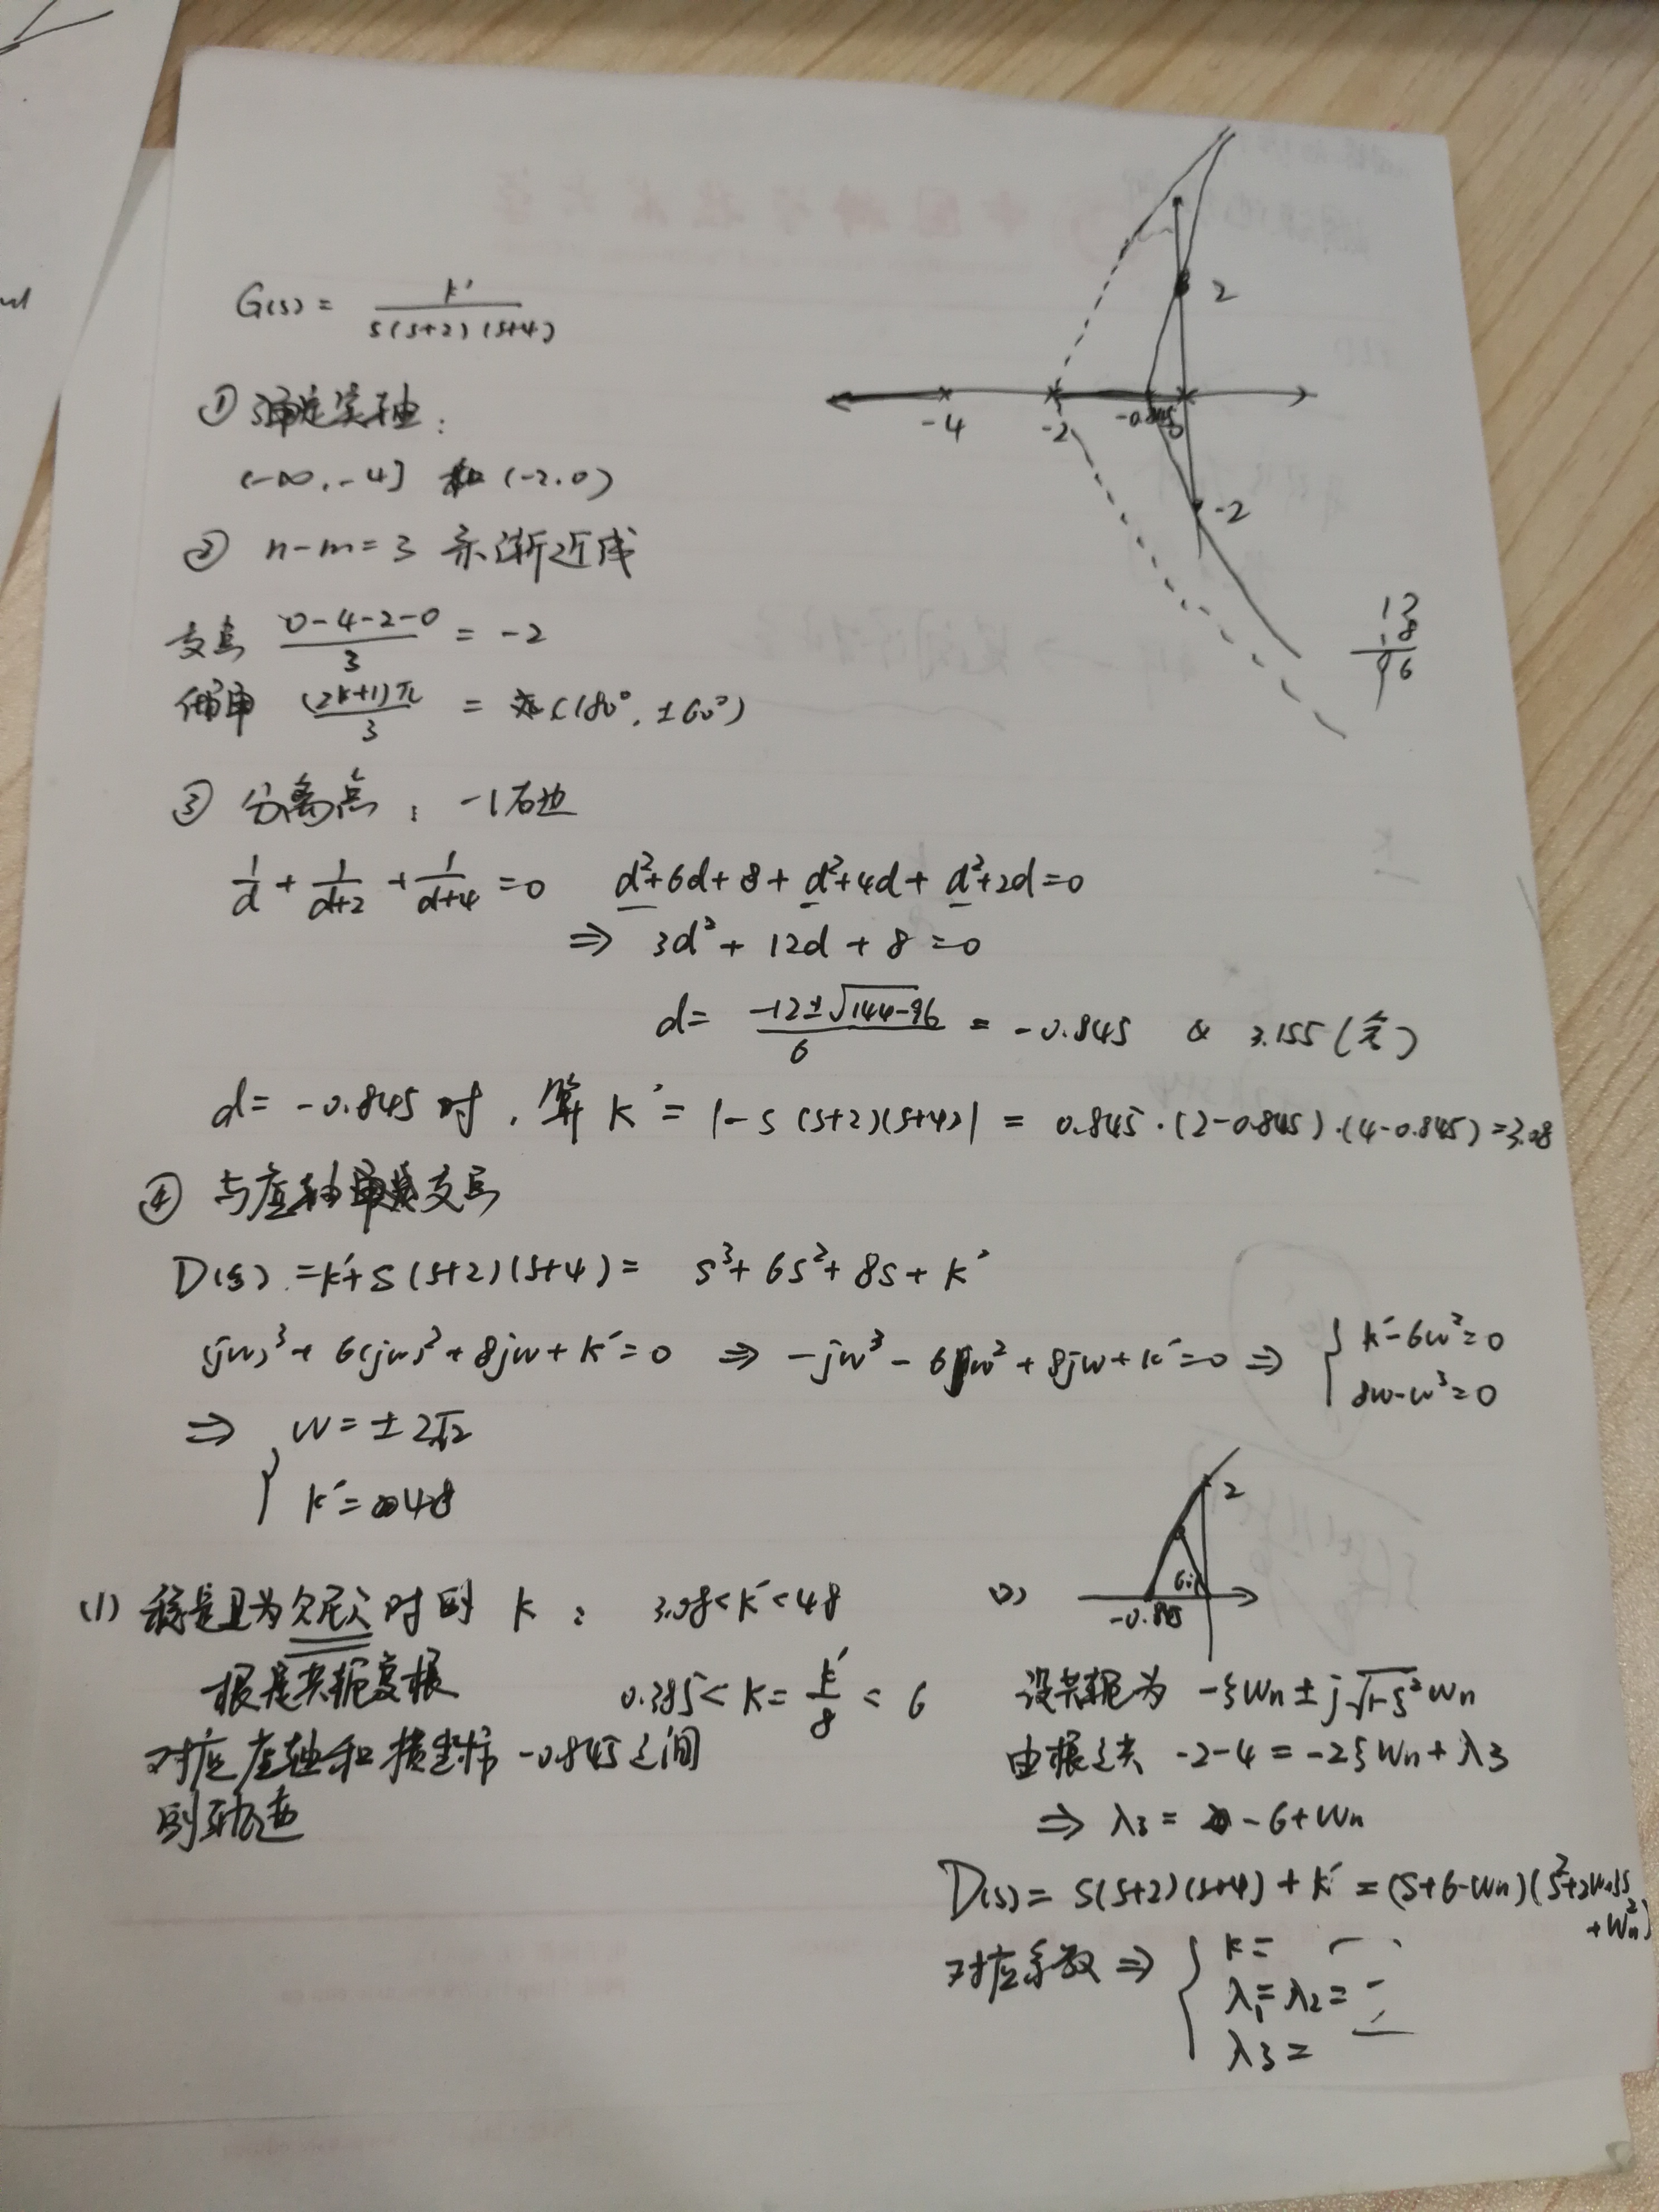 G(s) = k' / s(s+2)(s+4)
① 确定实轴:
(-∞,-4] 和 (-2,0)
② n-m=3 条渐近线
交点 (0-4-2-0)/3 = -2
倾角 (2k+1)π/3 = (180°, ±60°)
③ 分离点: -1右边
1/d + 1/(d+2) + 1/(d+4) = 0  d²+6d+8+d²+4d+d²+2d=0
⇒ 3d²+12d+8=0
d= (-12±√(144-96))/6 = -0.845 & 3.155(舍)
d= -0.845 时, 算 k' = |-s(s+2)(s+4)| = 0.845·(2-0.845)·(4-0.845)=3.08
④ 与虚轴交点
D(s) = k'+s(s+2)(s+4) = s³+6s²+8s+k'
(jw)³+6(jw)²+8jw+k'=0 ⇒ -jw³-6w²+8jw+k'=0 ⇒ { k'-6w²=0
8w-w³=0
⇒ { w=±2√2
k'=48
(1) 稳定且为欠阻尼时的 k: 3.08<k'<48
根是共轭复根 0.385<k=k'/8<6
对应虚轴和横坐标 -0.845之间
的轨迹
-4
-2
-0.845
0
2
-2
12
8
96
(2)
2
60°
-0.845
设共轭为 -ξWn±j√(1-ξ²)Wn
由根之和 -2-4=-2ξWn+λ3
⇒ λ3= -6+Wn
D(s)= s(s+2)(s+4)+k' = (s+6-Wn)(s²+2Wnξs
+Wn²)
对应系数 ⇒ { k=
λ1=λ2=
λ3=